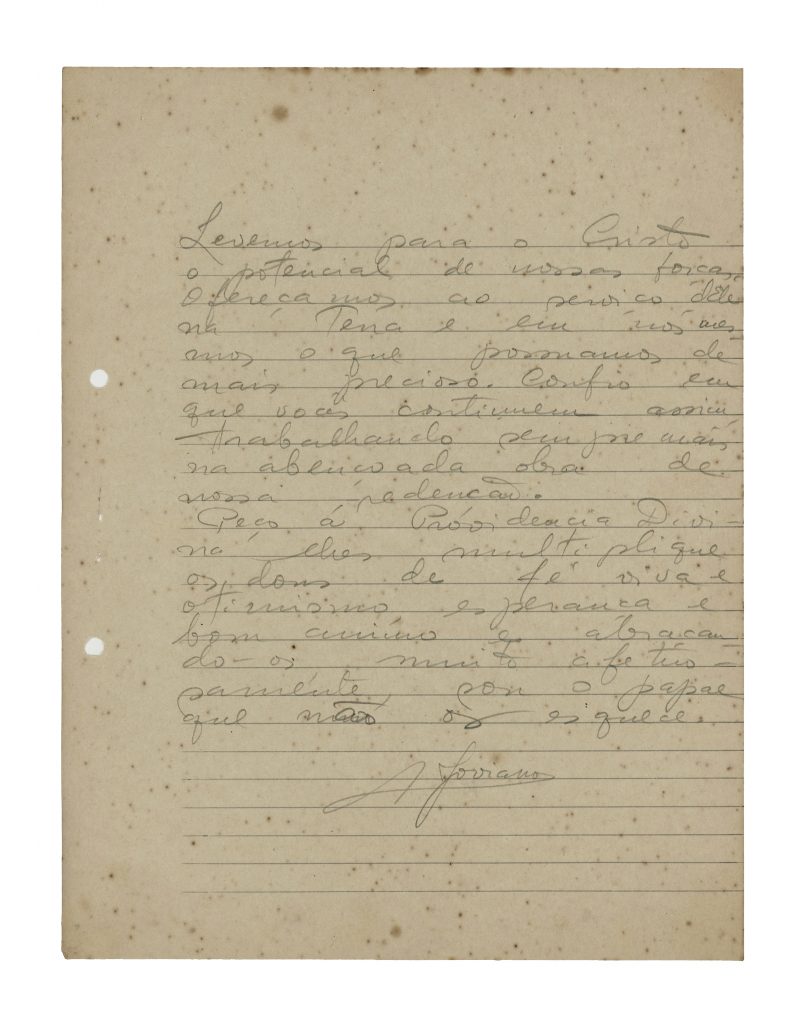 Levemos para o Cristo
o potencial de nossas forças.
Ofereçamos ao serviço dêle
na Terra e em nós mes-
mos o que possuamos de
mais precioso. Confio em
que vocês continuem assim
trabalhando sempre mais
na abençoada obra de
nossa redenção.
Peço á Providencia Divi-
na lhes multiplique
os dons de fé viva e
otimismo esperança e
bom animo e abraçan
do-os muito afetuo-
samente, sou o papae
que não os esquece.
A Joviano